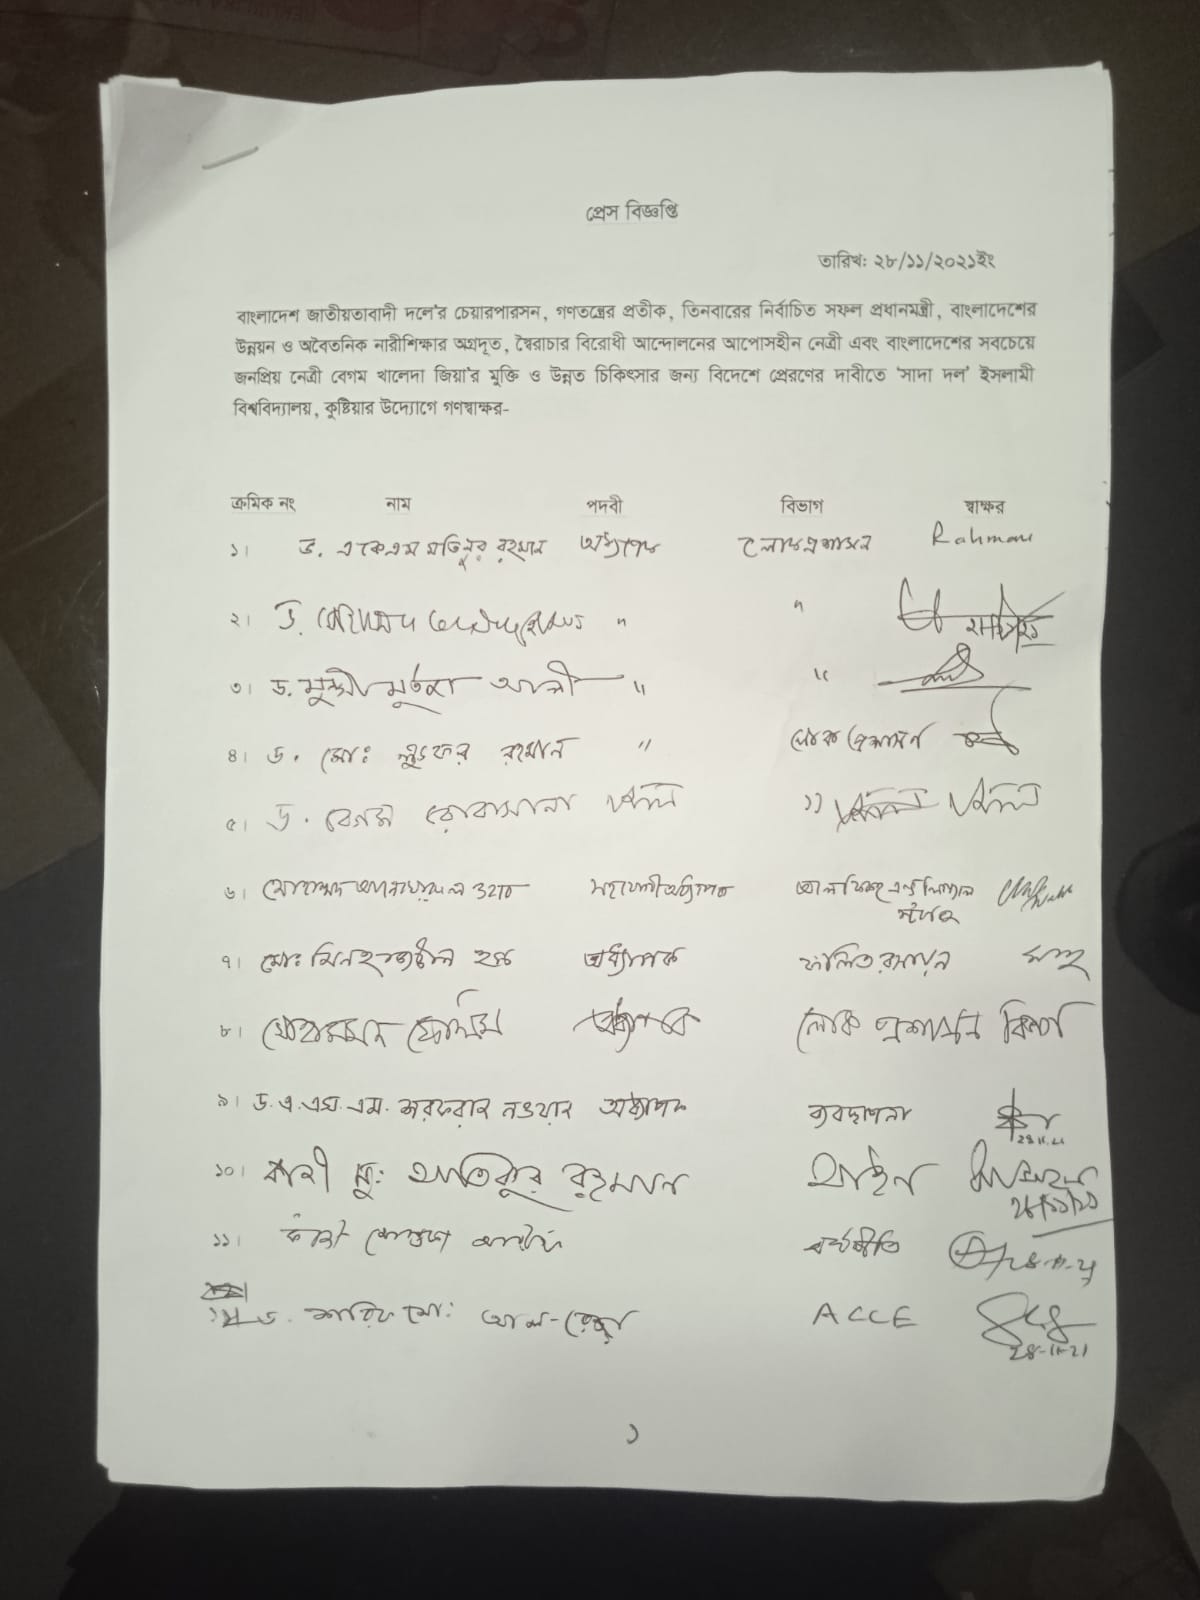 প্রেস বিজ্ঞপ্তি
তারিখ: ২৮/১১/২০২১ইং
বাংলাদেশ জাতীয়তাবাদী দলে'র চেয়ারপারসন, গণতন্ত্রের প্রতীক, তিনবারের নির্বাচিত সফল প্রধানমন্ত্রী, বাংলাদেশের
উন্নয়ন ও অবৈতনিক নারীশিক্ষার অগ্রদূত, স্বৈরাচার বিরোধী আন্দোলনের আপোসহীন নেত্রী এবং বাংলাদেশের সবচেয়ে
জনপ্রিয় নেত্রী বেগম খালেদা জিয়া'র মুক্তি ও উন্নত চিকিৎসার জন্য বিদেশে প্রেরণের দাবীতে 'সাদা দল' ইসলামী
বিশ্ববিদ্যালয়, কুষ্টিয়ার উদ্যোগে গণস্বাক্ষর-
ক্রমিক নং নাম পদবী বিভাগ স্বাক্ষর
১। ড. এ কে এম মতিনুর রহমান অধ্যাপক লোকপ্রশাসন Rahman
২। ড. " "
৩। ড. মুন্সী মুর্তজা আলী " "
৪। ড. মোঃ লুৎফর রহমান " লোক প্রশাসন
৫। ড. বেগম রোকসানা "
৬। মোহাম্মদ সহযোগী অধ্যাপক
৭। মোঃ মিনহাজ উল হক অধ্যাপক ফলিত রসায়ন
৮। মোহাম্মদ সেলিম অধ্যাপক লোক প্রশাসন
৯। ড. এ. এস. এম. সরফরাজ নওয়াজ অধ্যাপক ব্যবস্থাপনা 28.11.21
১০। কাজী আতিকুর রহমান আইন
১১। কাজী মোস্তফা আরীফ অর্থনীতি 28-11-21
ড. শরিফ মো: আল-রেজা ACCE
28-11-21
১